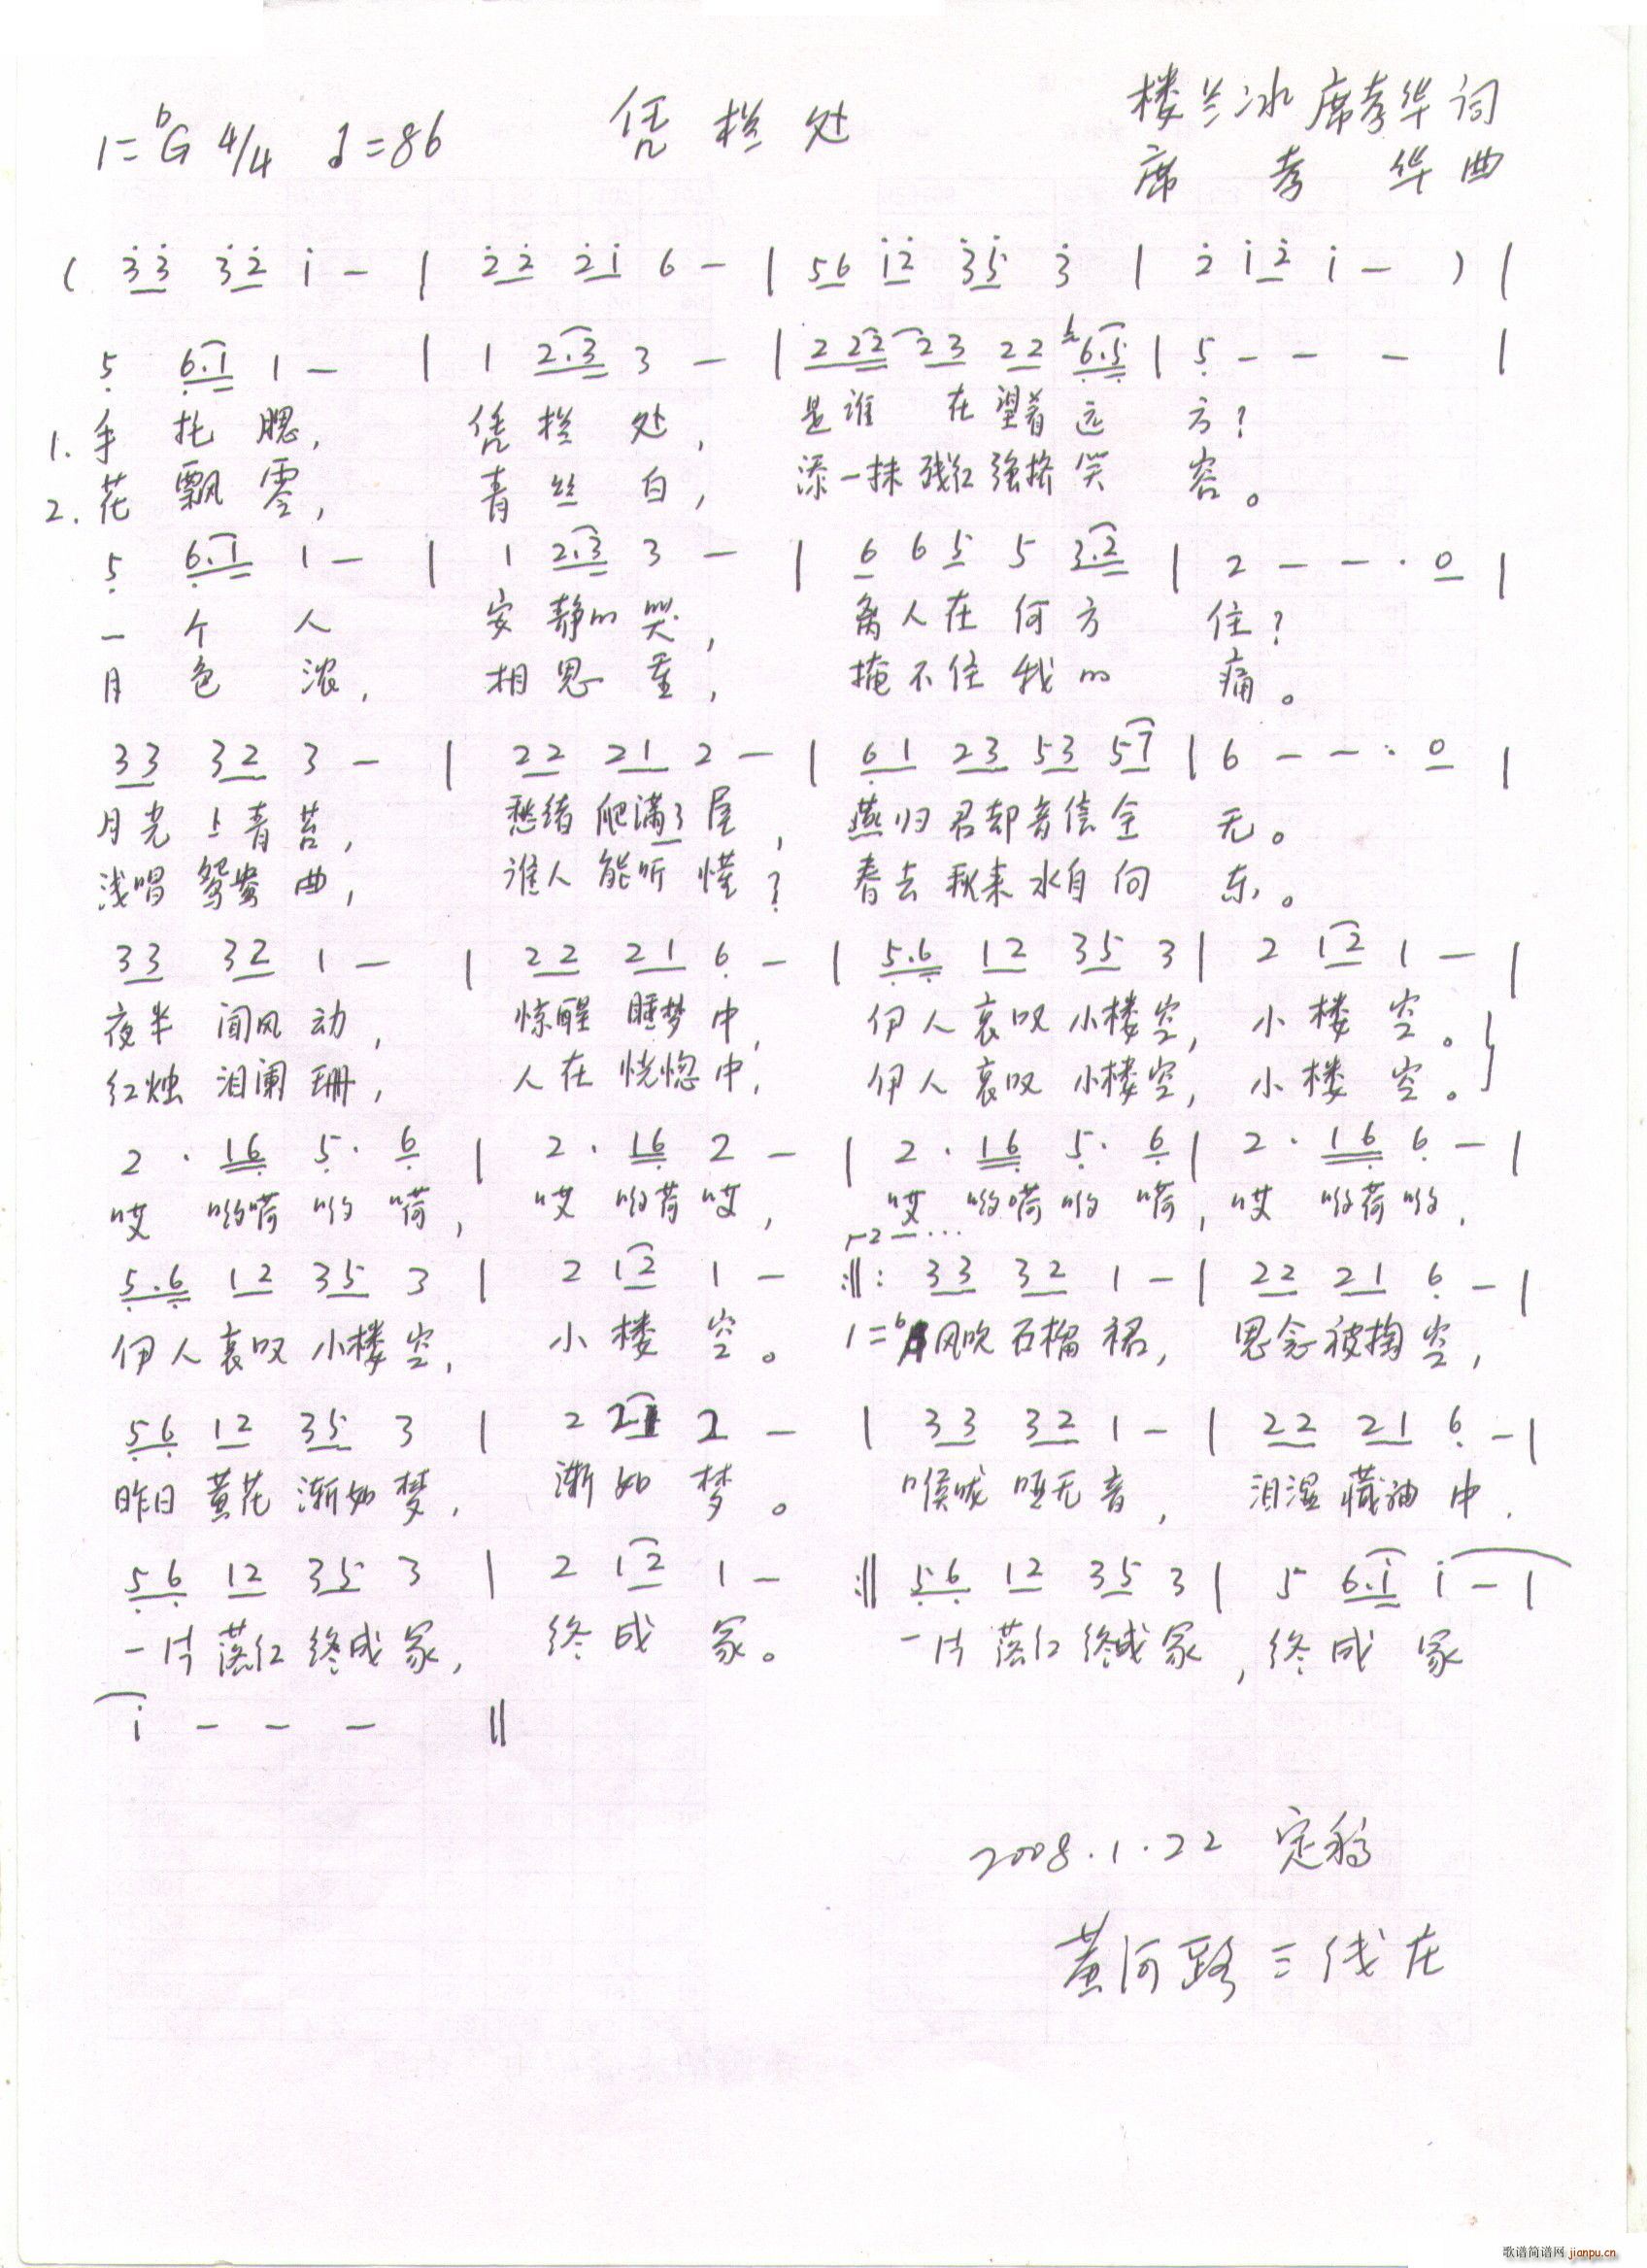 1=♭G 4/4 ♩=86 凭栏处 楼兰冰 席孝华 词
席孝华 曲
( 3̇3̇ 3̇2̇ 1̇ — | 2̇2̇ 2̇1̇ 6 — | 56 1̇2̇ 3̇5̇ 3̇ | 2̇ 1̇2̇ 1̇ — ) |
5 6.1 1 — | 1 2.3 3 — | 2 22 23 22 6.5 | 5 — — — |
1. 手托腮, 凭栏处, 是谁在望着远方?
2. 花飘零, 青丝白, 添一抹残红强撑笑容。
5 6.1 1 — | 1 2.3 3 — | 6 6 5 5 3.2 | 2 — — · 0 |
一个人 安静的哭, 离人在何方住?
月色浓, 相思重, 掩不住我的痛。
33 32 3 — | 22 21 2 — | 61 23 53 57 | 6 — — · 0 |
月光上青苔, 愁绪爬满了屋, 燕归君却音信全无。
浅唱鸳鸯曲, 谁人能听懂? 春去秋来水自向东。
33 32 1 — | 22 21 6 — | 5.6 12 35 3 | 2 12 1 — |
夜半闻风动, 惊醒睡梦中, 伊人哀叹小楼空, 小楼空。
红烛泪阑珊, 人在恍惚中, 伊人哀叹小楼空, 小楼空。
2 · 16 5 · 6 | 2 · 16 2 — | 2 · 16 5 · 6 | 2 · 16 6 — |
哎 哟嗬哟嗬, 哎 哟荷哎, 哎 哟嗬哟嗬, 哎 哟荷哟,
5.6 12 35 3 | 2 12 1 — :‖: 33 32 1 — | 22 21 6 — |
伊人哀叹小楼空, 小楼空。 1=♭A 风吹石榴裙, 思念被掏空,
56 12 35 3 | 2 21 2 — | 33 32 1 — | 22 21 6 — |
昨日黄花渐如梦, 渐如梦。 喉咙哑无音, 泪湿藏袖中.
56 12 35 3 | 2 12 1 — :‖ 56 12 35 3 | 5 6.1̇ 1̇ — |
一片落红终成冢, 终成冢。 一片落红终成冢, 终成冢
1̇ — — — ‖
2008.1.22 定稿
黄河路三线在
歌谱简谱网 jianpu.cn